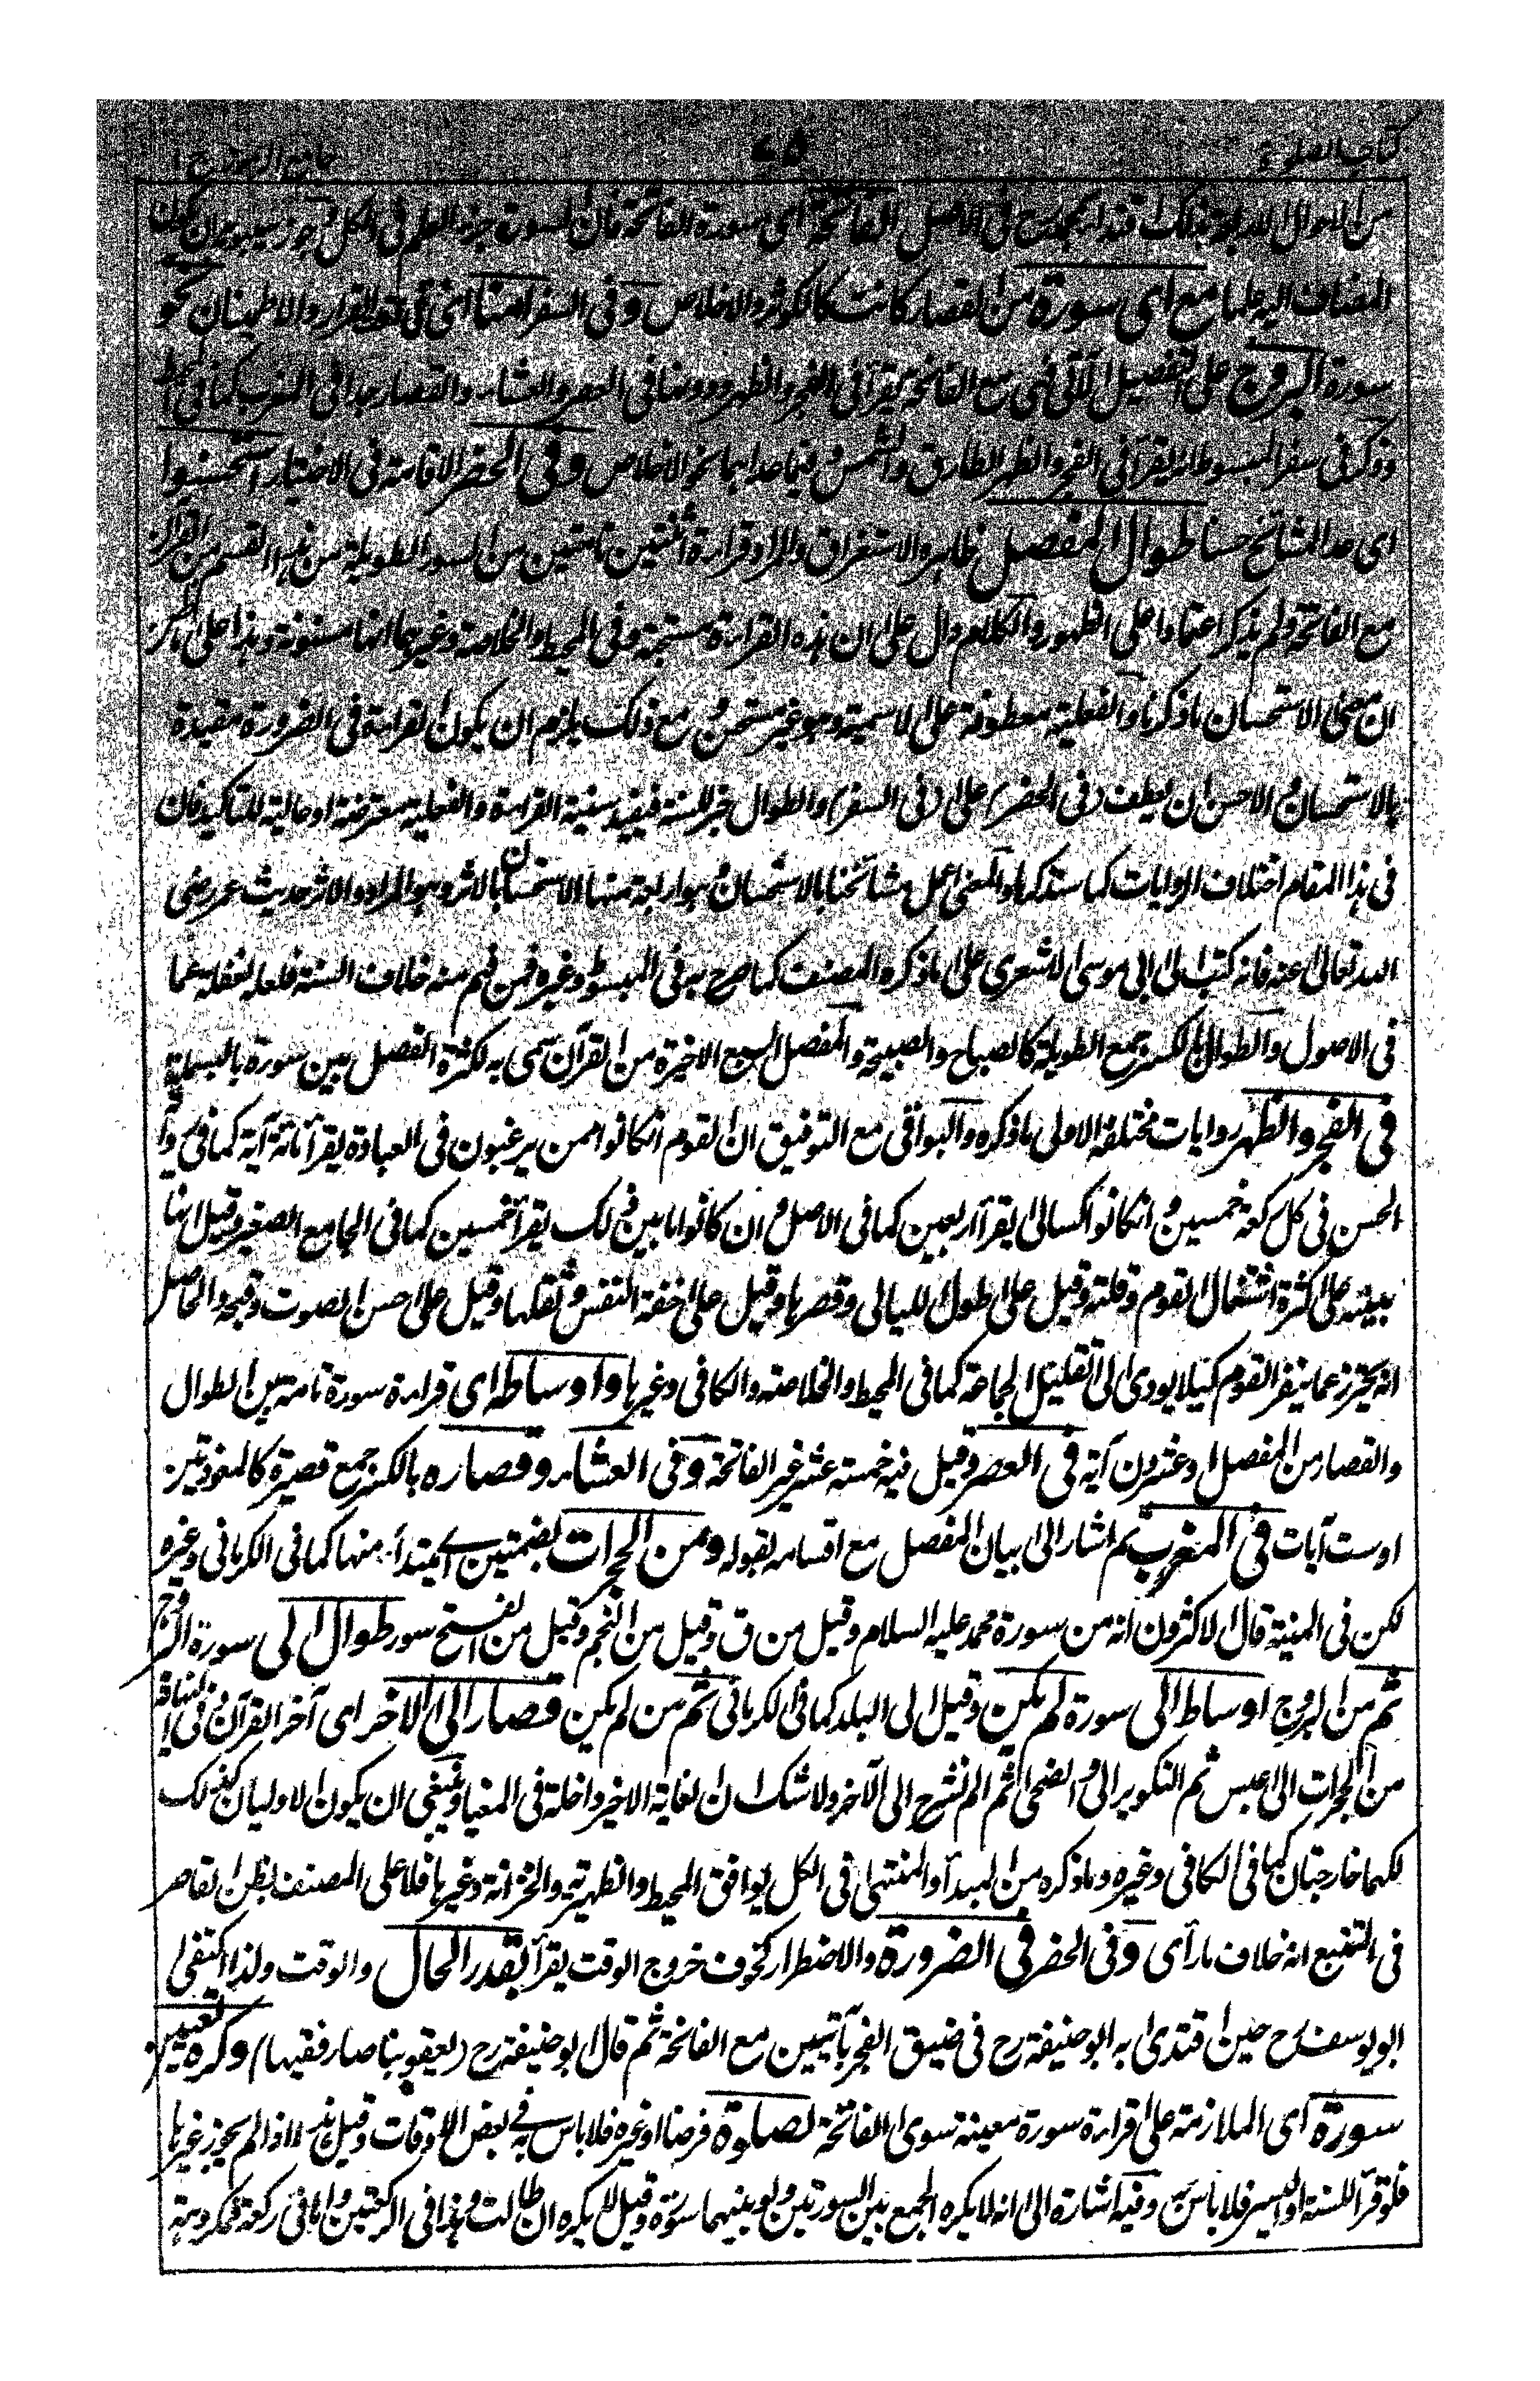 كتاب الصلوة ٧٥ جامع الرموز ج ١
من الاحوال الفاتحة اى سورة الفاتحة فان السورة جزء العلم فى الكل
المضاف اليه علما مع اى سورة من القصار كانت كالكوثر والاخلاص و فى السفر امنا اى فى القرار والاطمينان نحو
سورة البروج على التفصيل الآتى مع الفاتحة يقرأ فى الفجر والظهر ودونها فى العصر والعشاء والقصار جدا فى المغرب كما فى المحيط
وذكر فى سفر المبسوط انه يقرأ فى الفجر والظهر الطارق والشمس وفيما عداهما نحو الاخلاص و فى الحضر الاقامة فى الاختيار استحسنوا
اى عد المشائخ حسنا طوال المفصل ظاهره الاستغراق والمراد قراءة اثنتين تامتين من السور الطويلة من هذا القسم من القرآن
مع الفاتحة ولم يذكر اعتمادا على الظهور والكلام دال على ان هذه القراءة مستحبة وفى المحيط والخلاصة وغيرهما انها مسنونة وهذا على
ان معنى الاستحسان ما ذكرنا والفعلية معطوفة على الاسمية وهو غير مستحسن ومع ذلك يلزم ان يكون القراءة فى الضرورة مقيدة
بالاستحسان والاحسن ان يعطف (فى الحضر) على (فى السفر) والطوال خبر للسنة فيفيد سنية القراءة والفعلية معترضة او حالية للتاكيد فان
فى هذا المقام اختلاف الروايات كما ستذكر والمعنى عمل مشائخنا بالاستحسان وهو اربعة منها الاستحسان بالاثر وهو المراد والاثر حديث عمر رضى
الله تعالى عنه فانه كتب الى ابى موسى الاشعرى على ما ذكره المصنف كما صرح به فى المبسوط وغيره فمن فهم منه خلاف السنة فلعله لغفلة عما
فى الاصول والطوال بالكسر جمع الطويلة كالصباح والصبيحة والمفصل السبع الاخيرة من القرآن سمى به لكثرة الفصل بين سوره بالبسملة
فى الفجر والظهر روايات مختلفة الاولى ما ذكره والبواقى مع التوفيق ان القوم انكانوا ممن يرغبون فى العبادة يقرأ مائة آية كما فى رواية
الحسن فى كل ركعة خمسين وانكانوا كسالى يقرأ اربعين كما فى الاصل وان كانوا ما بين ذلك يقرأ خمسين كما فى الجامع الصغير وقيل انها
مبنية على كثرة اشتغال القوم وقلته وقيل على طول الليالى وقصرها وقيل على خفة النفس وثقلها وقيل على حسن الصوت وقبحه والحاصل
انه يحترز عما ينفر القوم كيلا يودى الى تقليل الجماعة كما فى المحيط والخلاصة والكافى وغيرها واوساطه اى قراءة سورة تامة بين الطوال
والقصار من المفصل او عشرون آية فى العصر وقيل فيه خمسة عشر غير الفاتحة وفى العشاء وقصاره بالكسر جمع قصيرة كالمعوذتين
او ست آيات فى المغرب ثم اشار الى بيان المفصل مع اقسامه بقوله ومن الحجرات بضمتين اى مبتدأ منها كما فى الكرمانى وغيره
لكن فى المنية قال الاكثرون انه من سورة محمد عليه السلام وقيل من ق وقيل من النجم وقيل من الفتح سور طوال الى سورة البروج
ثم من البروج اوساط الى سورة لم يكن وقيل الى البلد كما فى الكرمانى ثم من لم يكن قصار الى الاخر اى آخر القرآن وفى
من الحجرات الى عبس ثم التكوير الى والضحى ثم الم نشرح الى الآخر ولا شك ان الغاية الاخير داخلة فى المغيا وينبغى ان يكون الاوليان كذلك
لكنهما خارجتان كما فى الكافى وغيره وما ذكره من المبدأ والمنتهى فى الكل يوافق المحيط والظهيرية والخزانة وغيرها فلا على المصنف بظن القاصر
فى التتبع انه خلاف ما رآى وفى الحضر فى الضرورة والاضطرار كخوف خروج الوقت يقرأ بقدر الحال والوقت ولذا اكتفى
ابو يوسف رح حين اقتدى به ابو حنيفة رح فى ضيق الفجر بآيتين مع الفاتحة ثم قال ابو حنيفة رح (يعقوبنا صار فقيها) وكره تعيين
سورة اى الملازمة على قراءة سورة معينة سوى الفاتحة لصلوة فرضا او غيره فلا باس به فى بعض الاوقات وقيل هذا اذا لم يجوز غيرها
فلو قرأ للسنة او اليسر فلا باس به وفيه اشارة الى انه لا يكره الجمع بين السورتين ولو بينهما سورة وقيل يكره ان طالت وهذا فى الركعتين واما فى ركعة فمكروهة